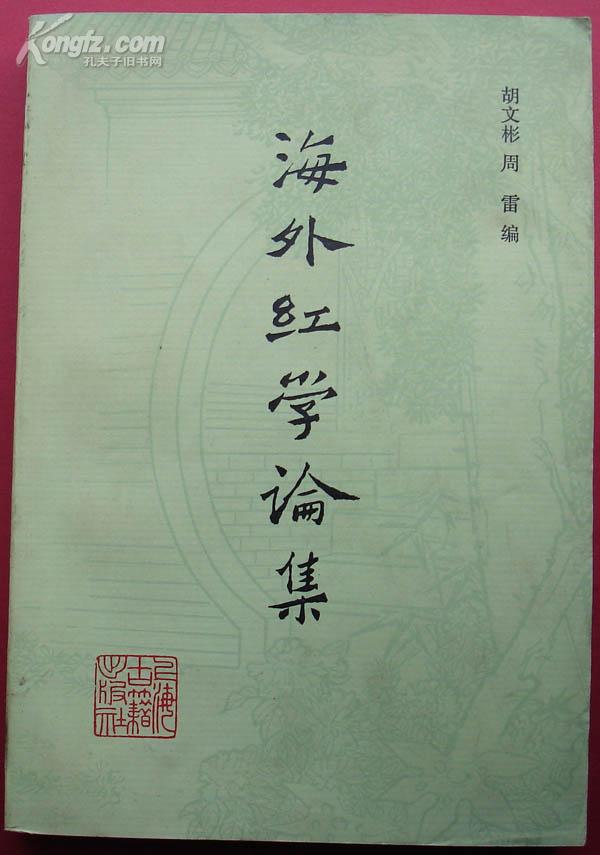 Kongfz.com
孔夫子旧书网
胡文彬 周 雷 编
海外红学論集
上海
古籍
出版社